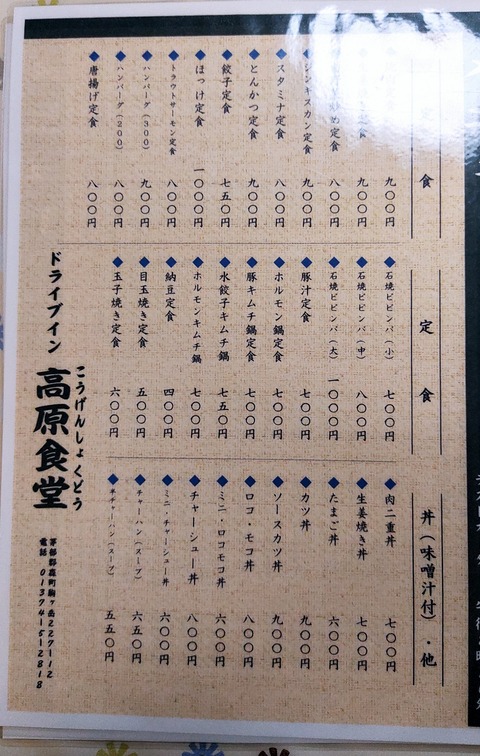 食
九〇〇円
定食 九〇〇円
定食 八〇〇円
ジンギスカン定食 九〇〇円
スタミナ定食 八〇〇円
とんかつ定食 九〇〇円
餃子定食 七五〇円
ほっけ定食 一〇〇〇円
トラウトサーモン定食 八〇〇円
ハンバーグ(300) 九〇〇円
ハンバーグ(200) 八〇〇円
唐揚げ定食 八〇〇円
定食
石焼ビビンバ(小) 七〇〇円
石焼ビビンバ(中) 八〇〇円
石焼ビビンバ(大) 一〇〇〇円
豚汁定食 七〇〇円
ホルモン鍋定食 七〇〇円
豚キムチ鍋定食 七〇〇円
水餃子キムチ鍋 七五〇円
ホルモンキムチ鍋 七〇〇円
納豆定食 四〇〇円
目玉焼き定食 五〇〇円
玉子焼き定食 六〇〇円
丼(味噌汁付)・他
肉二重丼 七〇〇円
生姜焼き丼 七〇〇円
たまご丼 六〇〇円
カツ丼 九〇〇円
ソースカツ丼 九〇〇円
ロコ・モコ丼 八〇〇円
ミニ・ロコモコ丼 六〇〇円
チャーシュー丼 八〇〇円
ミニ・チャーシュー丼 六〇〇円
チャーハン(スープ) 六五〇円
半チャーハン(スープ) 五五〇円
ドライブイン
こうげんしょくどう
高原食堂
茅部郡森町駒ヶ岳227-112
電話 01374-5-2818